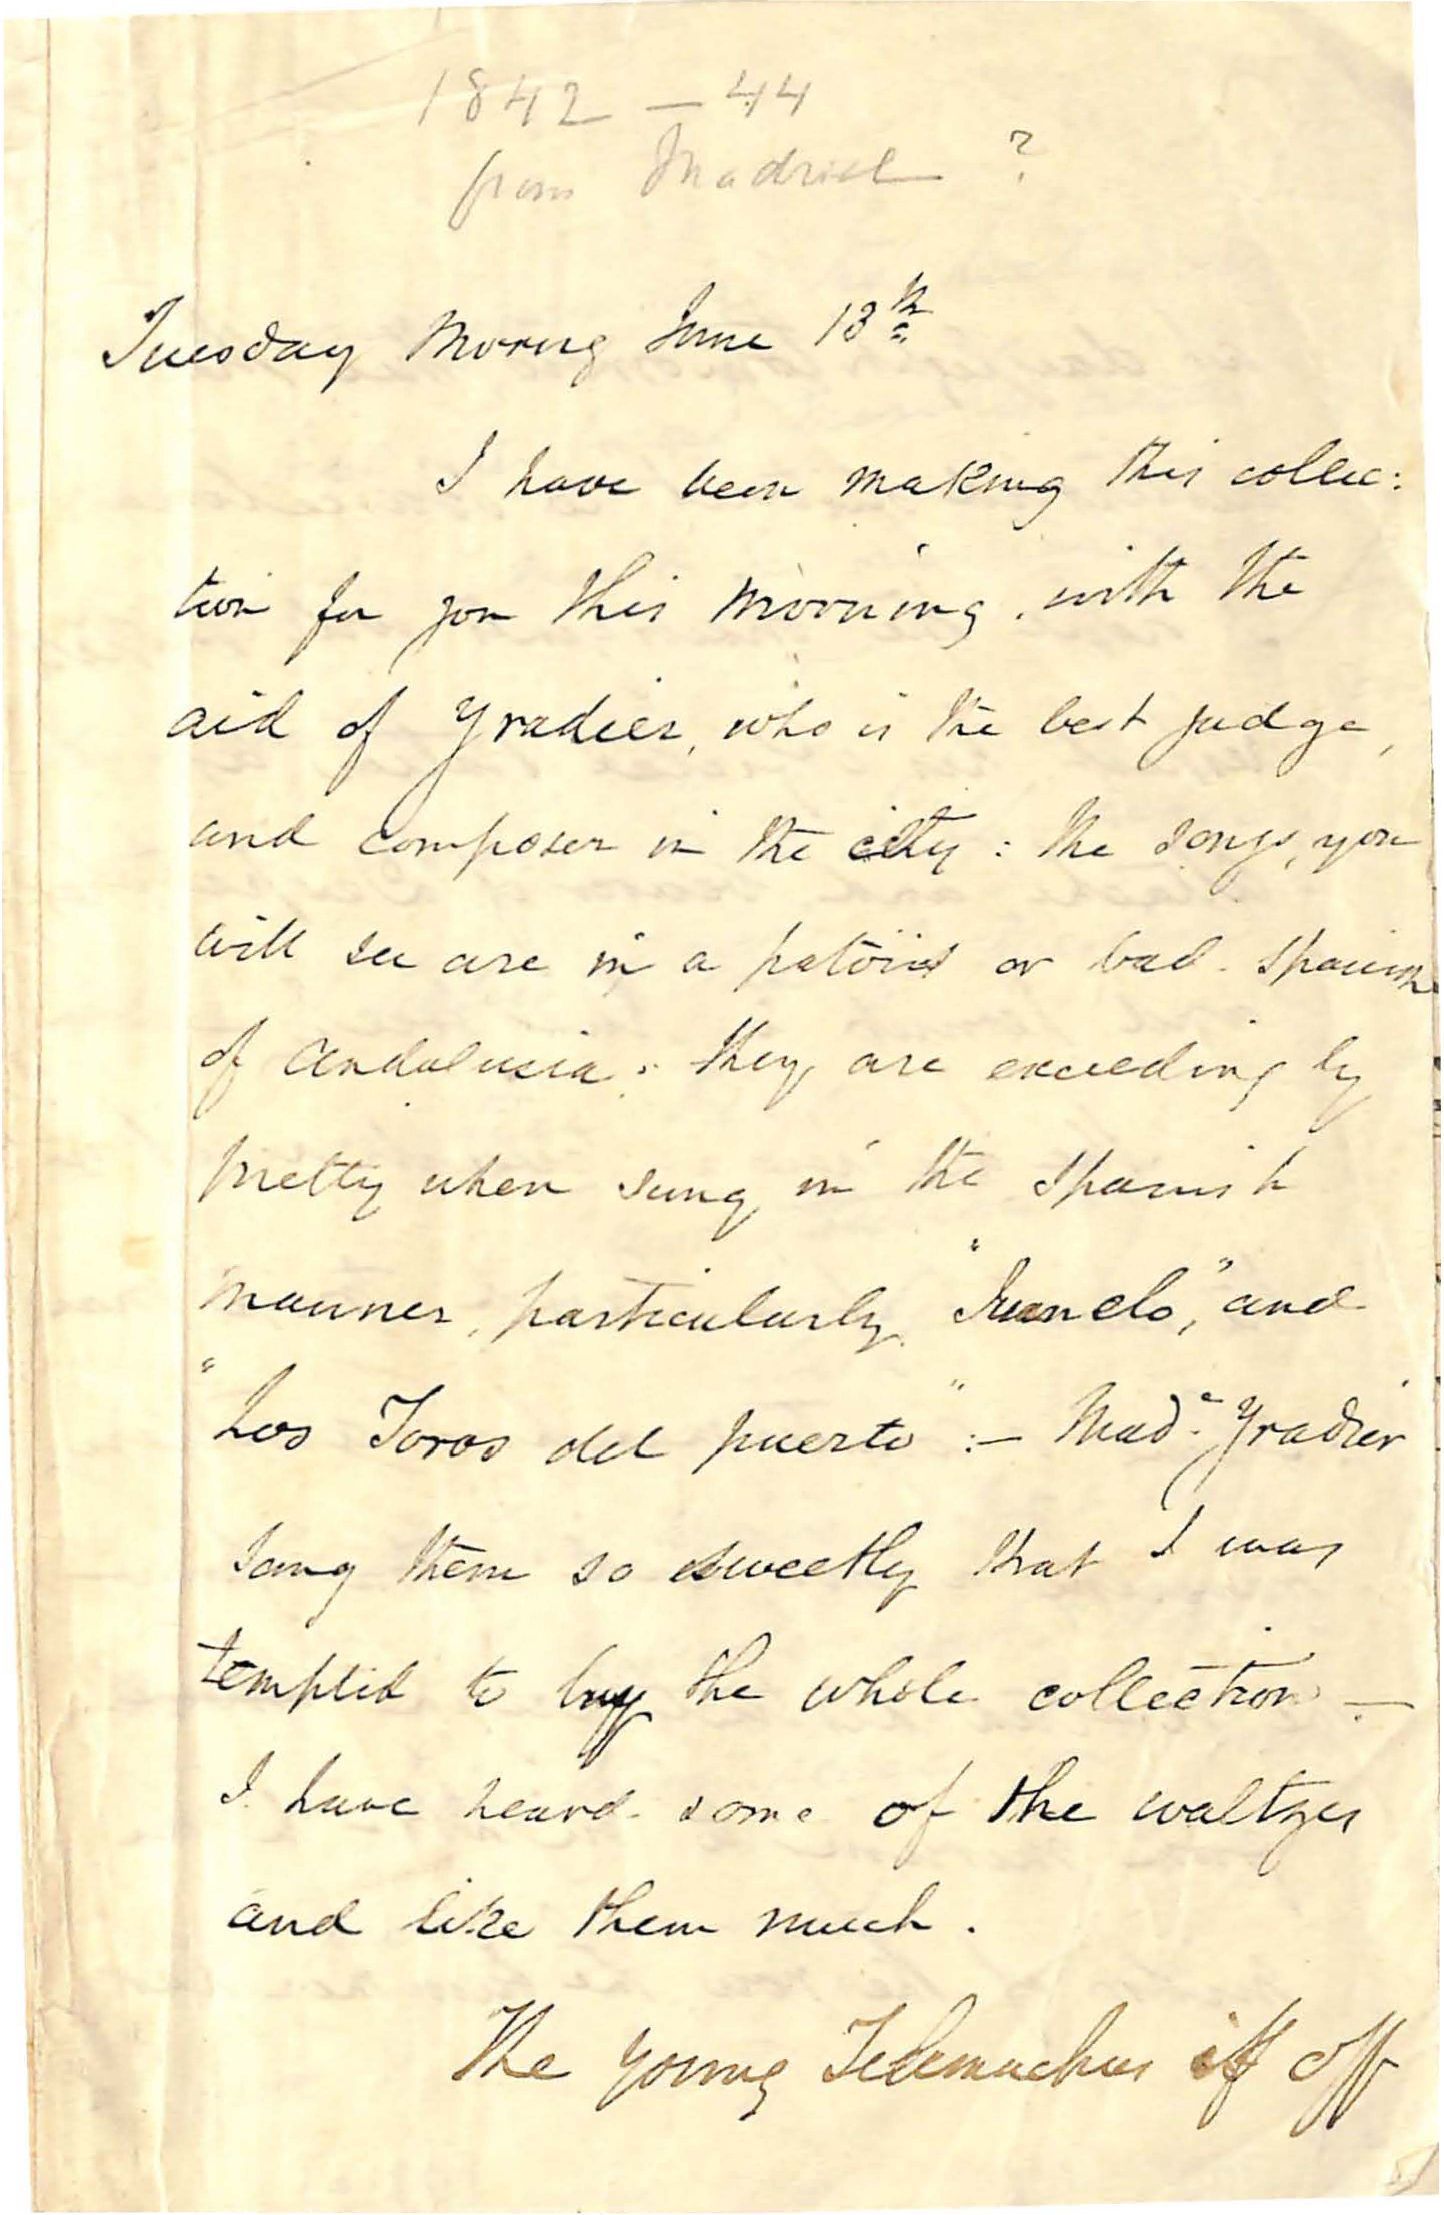 1842 – 44
from Madrid ?
Tuesday Mornig June 13th
I have been making this collec:
tion for you this morning, with the
aid of Yradier, who is the best judge,
and composer in the city : the songs, you
will see are in a patois or bad Spanish
of Andalusia : they are exceedingly
pretty when sung in the Spanish
manner, particularly "Juanelo," and
"Los Toros del puerto" :– Made Yradier
sang them so sweetly that I was
tempted to buy the whole collection –
I have heard some of the waltzes
and like them much.
The young Telemachus is off